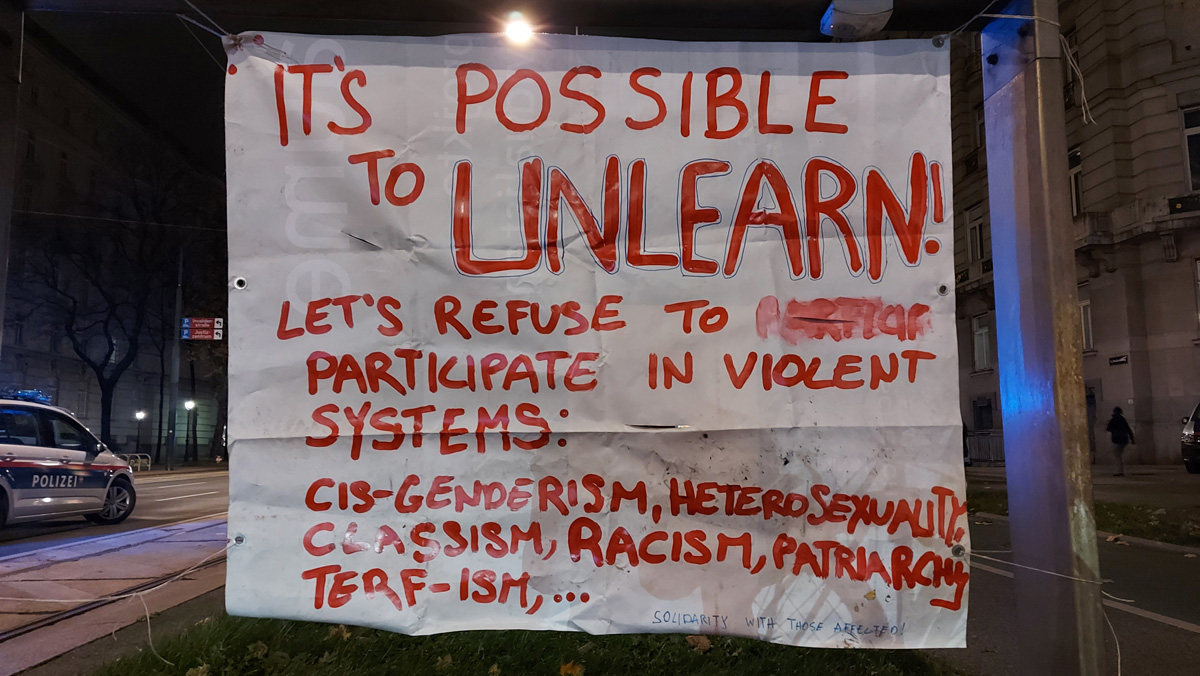 IT'S POSSIBLE
TO UNLEARN!
LET'S REFUSE TO
PARTICIPATE IN VIOLENT
SYSTEMS:
CIS-GENDERISM, HETEROSEXUALITY,
CLASSISM, RACISM, PATRIARCHY
TERF-ISM, ...
SOLIDARITY WITH THOSE AFFECTED!
POLIZEI